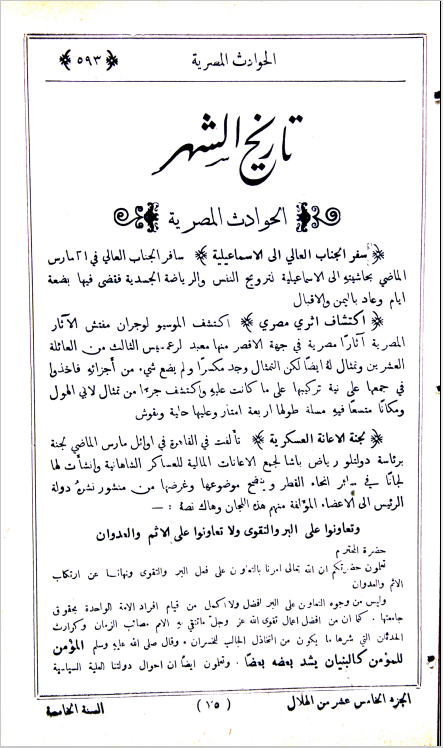 الحوادث المصرية
﴿ ٥٩٣ ﴾
تاريخ الشهر
الحوادث المصرية
﴿ سفر الجناب العالي الى الاسماعيلية ﴾ سافر الجناب العالي في ٢١ مارس
الماضي بحاشيته الى الاسماعيلية لترويح النفس والرياضة الجسدية فقضى فيها بضعة
ايام وعاد باليمن والاقبال
﴿ اكتشاف اثري مصري ﴾ اكتشف الموسيو لوجران مفتش الآثار
المصرية آثارًا مصرية في جهة الاقصر منها معبد لرعمسيس الثالث من العائلة
العشرين وتمثال له ايضًا لكن التمثال وجد مكسرًا ولم يضع شيء من أجزائه فاخذوا
في جمعها على نية تركيبها على ما كانت عليه واكتشف جزءا من تمثال لابي الهول
ومكانًا متسعًا فيه مسلة طولها اربعة امتار وعليها حلية ونقوش
﴿ لجنة الاعانة العسكرية ﴾ تألفت في القاهرة في اوائل مارس الماضي لجنة
برئاسة دولتلو رياض باشا لجمع الاعانات المالية للعساكر الشاهانية وانشأت لها
لجانًا في سائر انحاء القطر ويتضح موضوعها وغرضها من منشور نشرهُ دولة
الرئيس الى الاعضاء المؤلفة منهم هذه اللجان وهاك نصهُ : —
وتعاونوا على البر والتقوى ولا تعاونوا على الاثم والعدوان
حضرة المحترم
تعلمون حضرتكم ان الله تعالى امرنا بالتعاون على فعل البر والتقوى ونهانا عن ارتكاب
الاثم والعدوان
وليس من وجوه التعاون على البر افضل ولا اكمل من قيام افراد الامة الواحدة بحقوق
جامعتها . كما ان من افضل اعمال تقوى الله عز وجل ماتتقي به الامم مصائب الزمان وكوارث
الحدثان التي شرها ما يكون من التخاذل الجالب للخسران . وقال صلى الله عليه وسلم المؤمن
للمؤمن كالبنيان يشد بعضه بعضا . وتعلمون ايضًا ان احوال دولتنا العلية السياسية
الجزء الخامس عشر من الهلال
( ١٥ )
السنة الخامسة